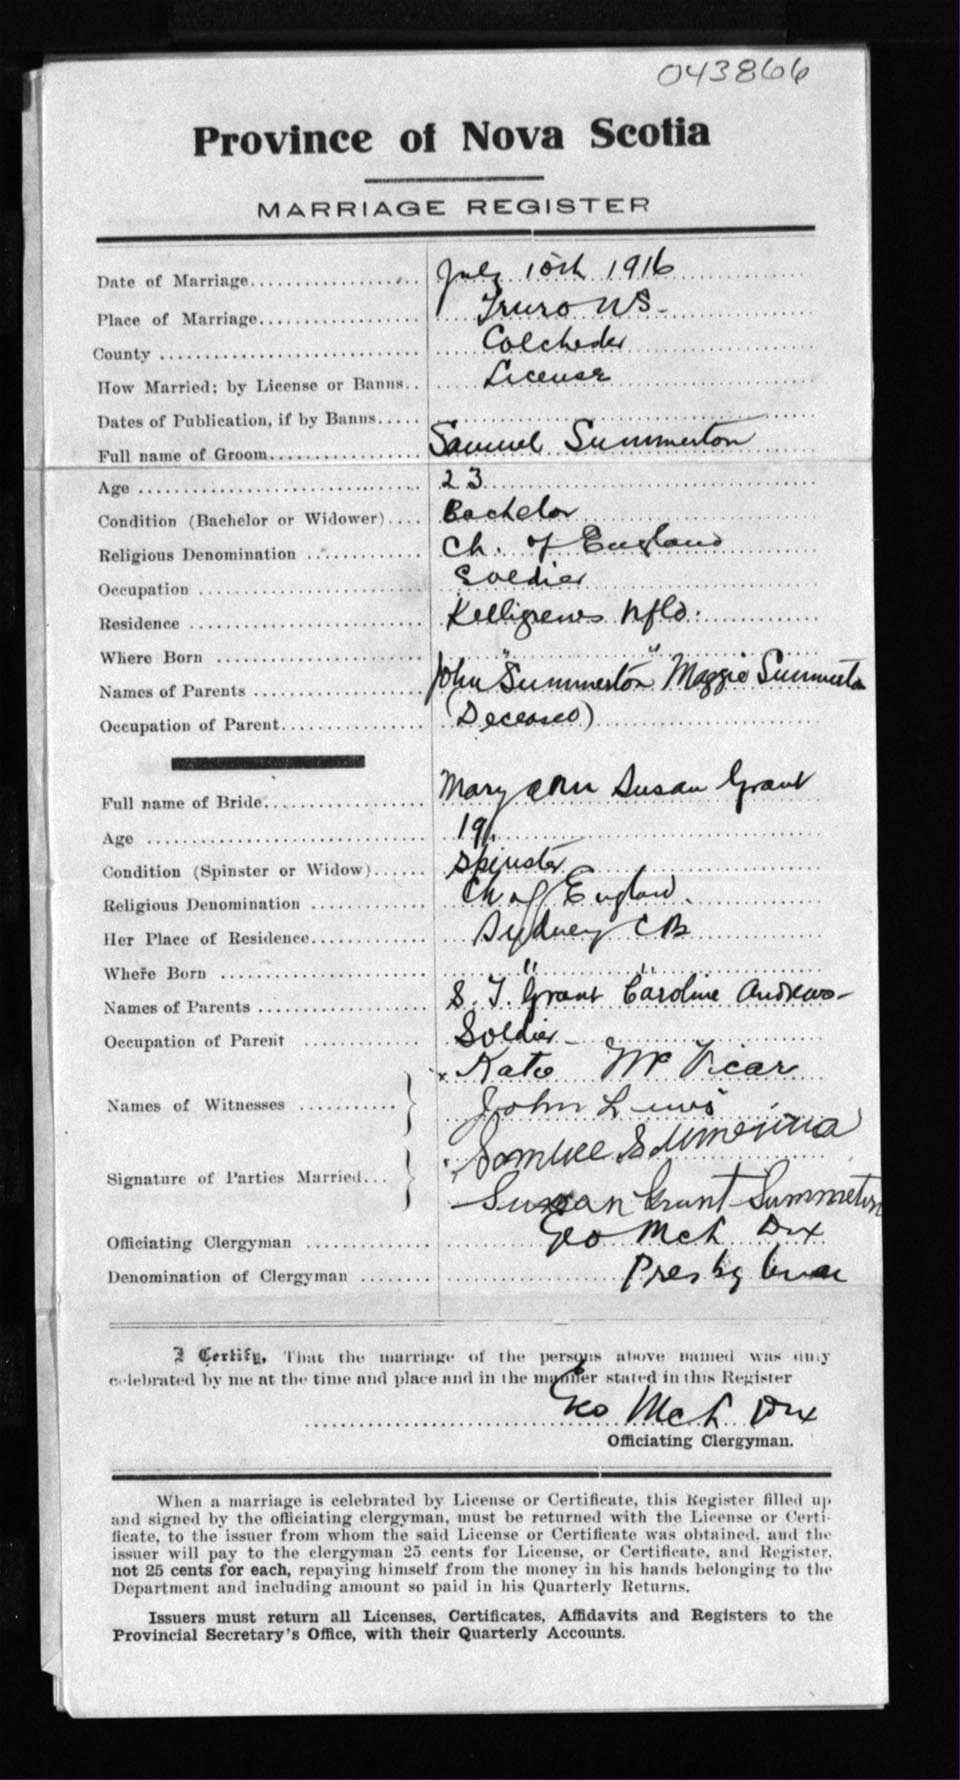 043866
Province of Nova Scotia
MARRIAGE REGISTER
Date of Marriage July 10th 1916
Place of Marriage Truro NS-
County Colchester
How Married; by License or Banns License
Dates of Publication, if by Banns
Full name of Groom Samuel Summerton
Age 23
Condition (Bachelor or Widower) Bachelor
Religious Denomination Ch. of England
Occupation Soldier
Residence Kelligrews Nfld.
Where Born " "
Names of Parents John Summerton Maggie Summerton
Occupation of Parent (Deceased)
Full name of Bride Mary Ann Susan Grant
Age 19
Condition (Spinster or Widow) Spinster
Religious Denomination Ch of England.
Her Place of Residence Sydney CB
Where Born " "
Names of Parents S. T. Grant Caroline Andrews-
Occupation of Parent Soldier-
Names of Witnesses x Kate McVicar
John Lewis
Signature of Parties Married Samuel
Susan Grant Summerton
Officiating Clergyman Geo McL
Denomination of Clergyman Presbyterian
I Certify, That the marriage of the persons above named was duly
celebrated by me at the time and place and in the manner stated in this Register
Geo McL
Officiating Clergyman.
When a marriage is celebrated by License or Certificate, this Register filled up
and signed by the officiating clergyman, must be returned with the License or Certi-
ficate, to the issuer from whom the said License or Certificate was obtained, and the
issuer will pay to the clergyman 25 cents for License, or Certificate, and Register,
not 25 cents for each, repaying himself from the money in his hands belonging to the
Department and including amount so paid in his Quarterly Returns.
Issuers must return all Licenses, Certificates, Affidavits and Registers to the
Provincial Secretary's Office, with their Quarterly Accounts.